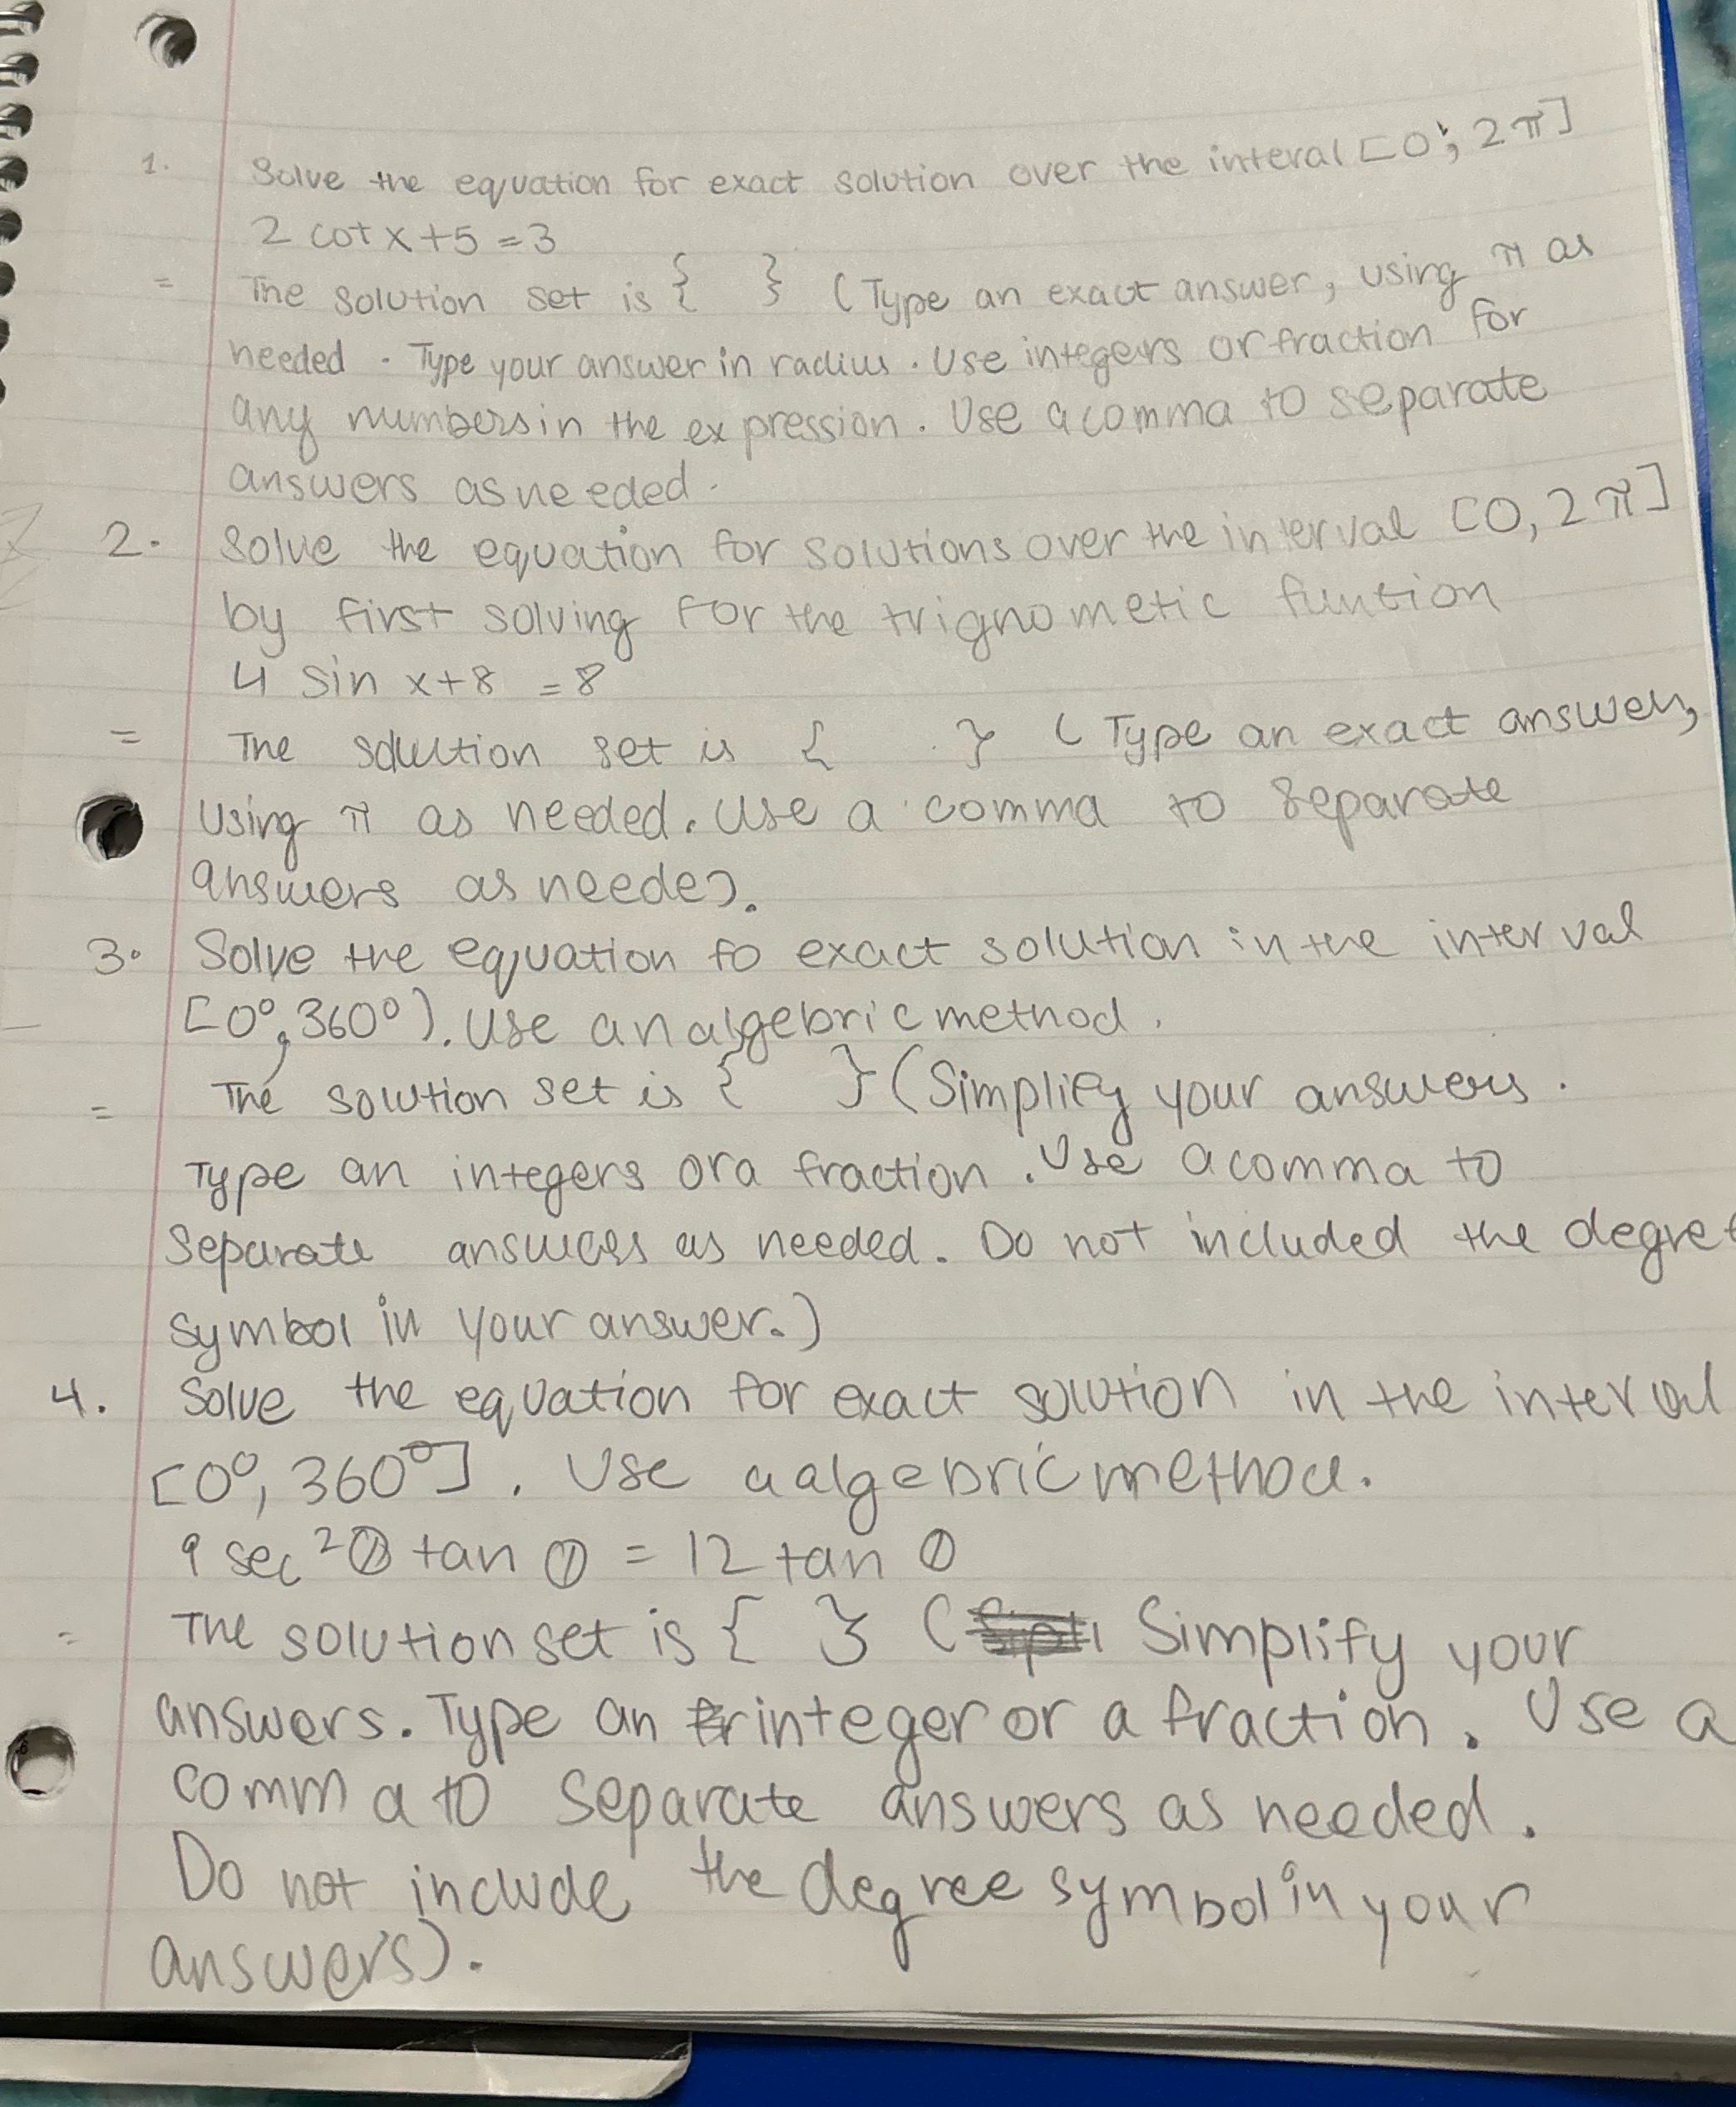 1. Solve the equation for exact solution over the interal [0°, 2π]
2 cot x+5 =3
= The solution set is { } (Type an exact answer, using π as
needed . Type your answer in radius. Use integers or fraction for
any numbers in the expression. Use a comma to separate
answers as needed.
2. Solve the equation for solutions over the interval [0, 2π]
by first solving for the trignometic funtion
4 sin x+8 =8
= The solution set is { } ( Type an exact answer,
Using π as needed. Use a comma to separate
answers as needed.
3. Solve the equation fo exact solution in the interval
[0°, 360°). Use an algebric method.
= The solution set is { } (Simplify your answers.
Type an integers or a fraction. Use a comma to
Separate answers as needed. Do not included the degree
symbol in your answer.)
4. Solve the equation for exact solution in the interval
[0°, 360°] . Use a algebric method.
9 sec ²θ tan θ = 12 tan θ
= The solution set is { } ( Simplify your
answers. Type an integer or a fraction. Use a
comma to separate answers as needed.
Do not include the degree symbol in your
answers).